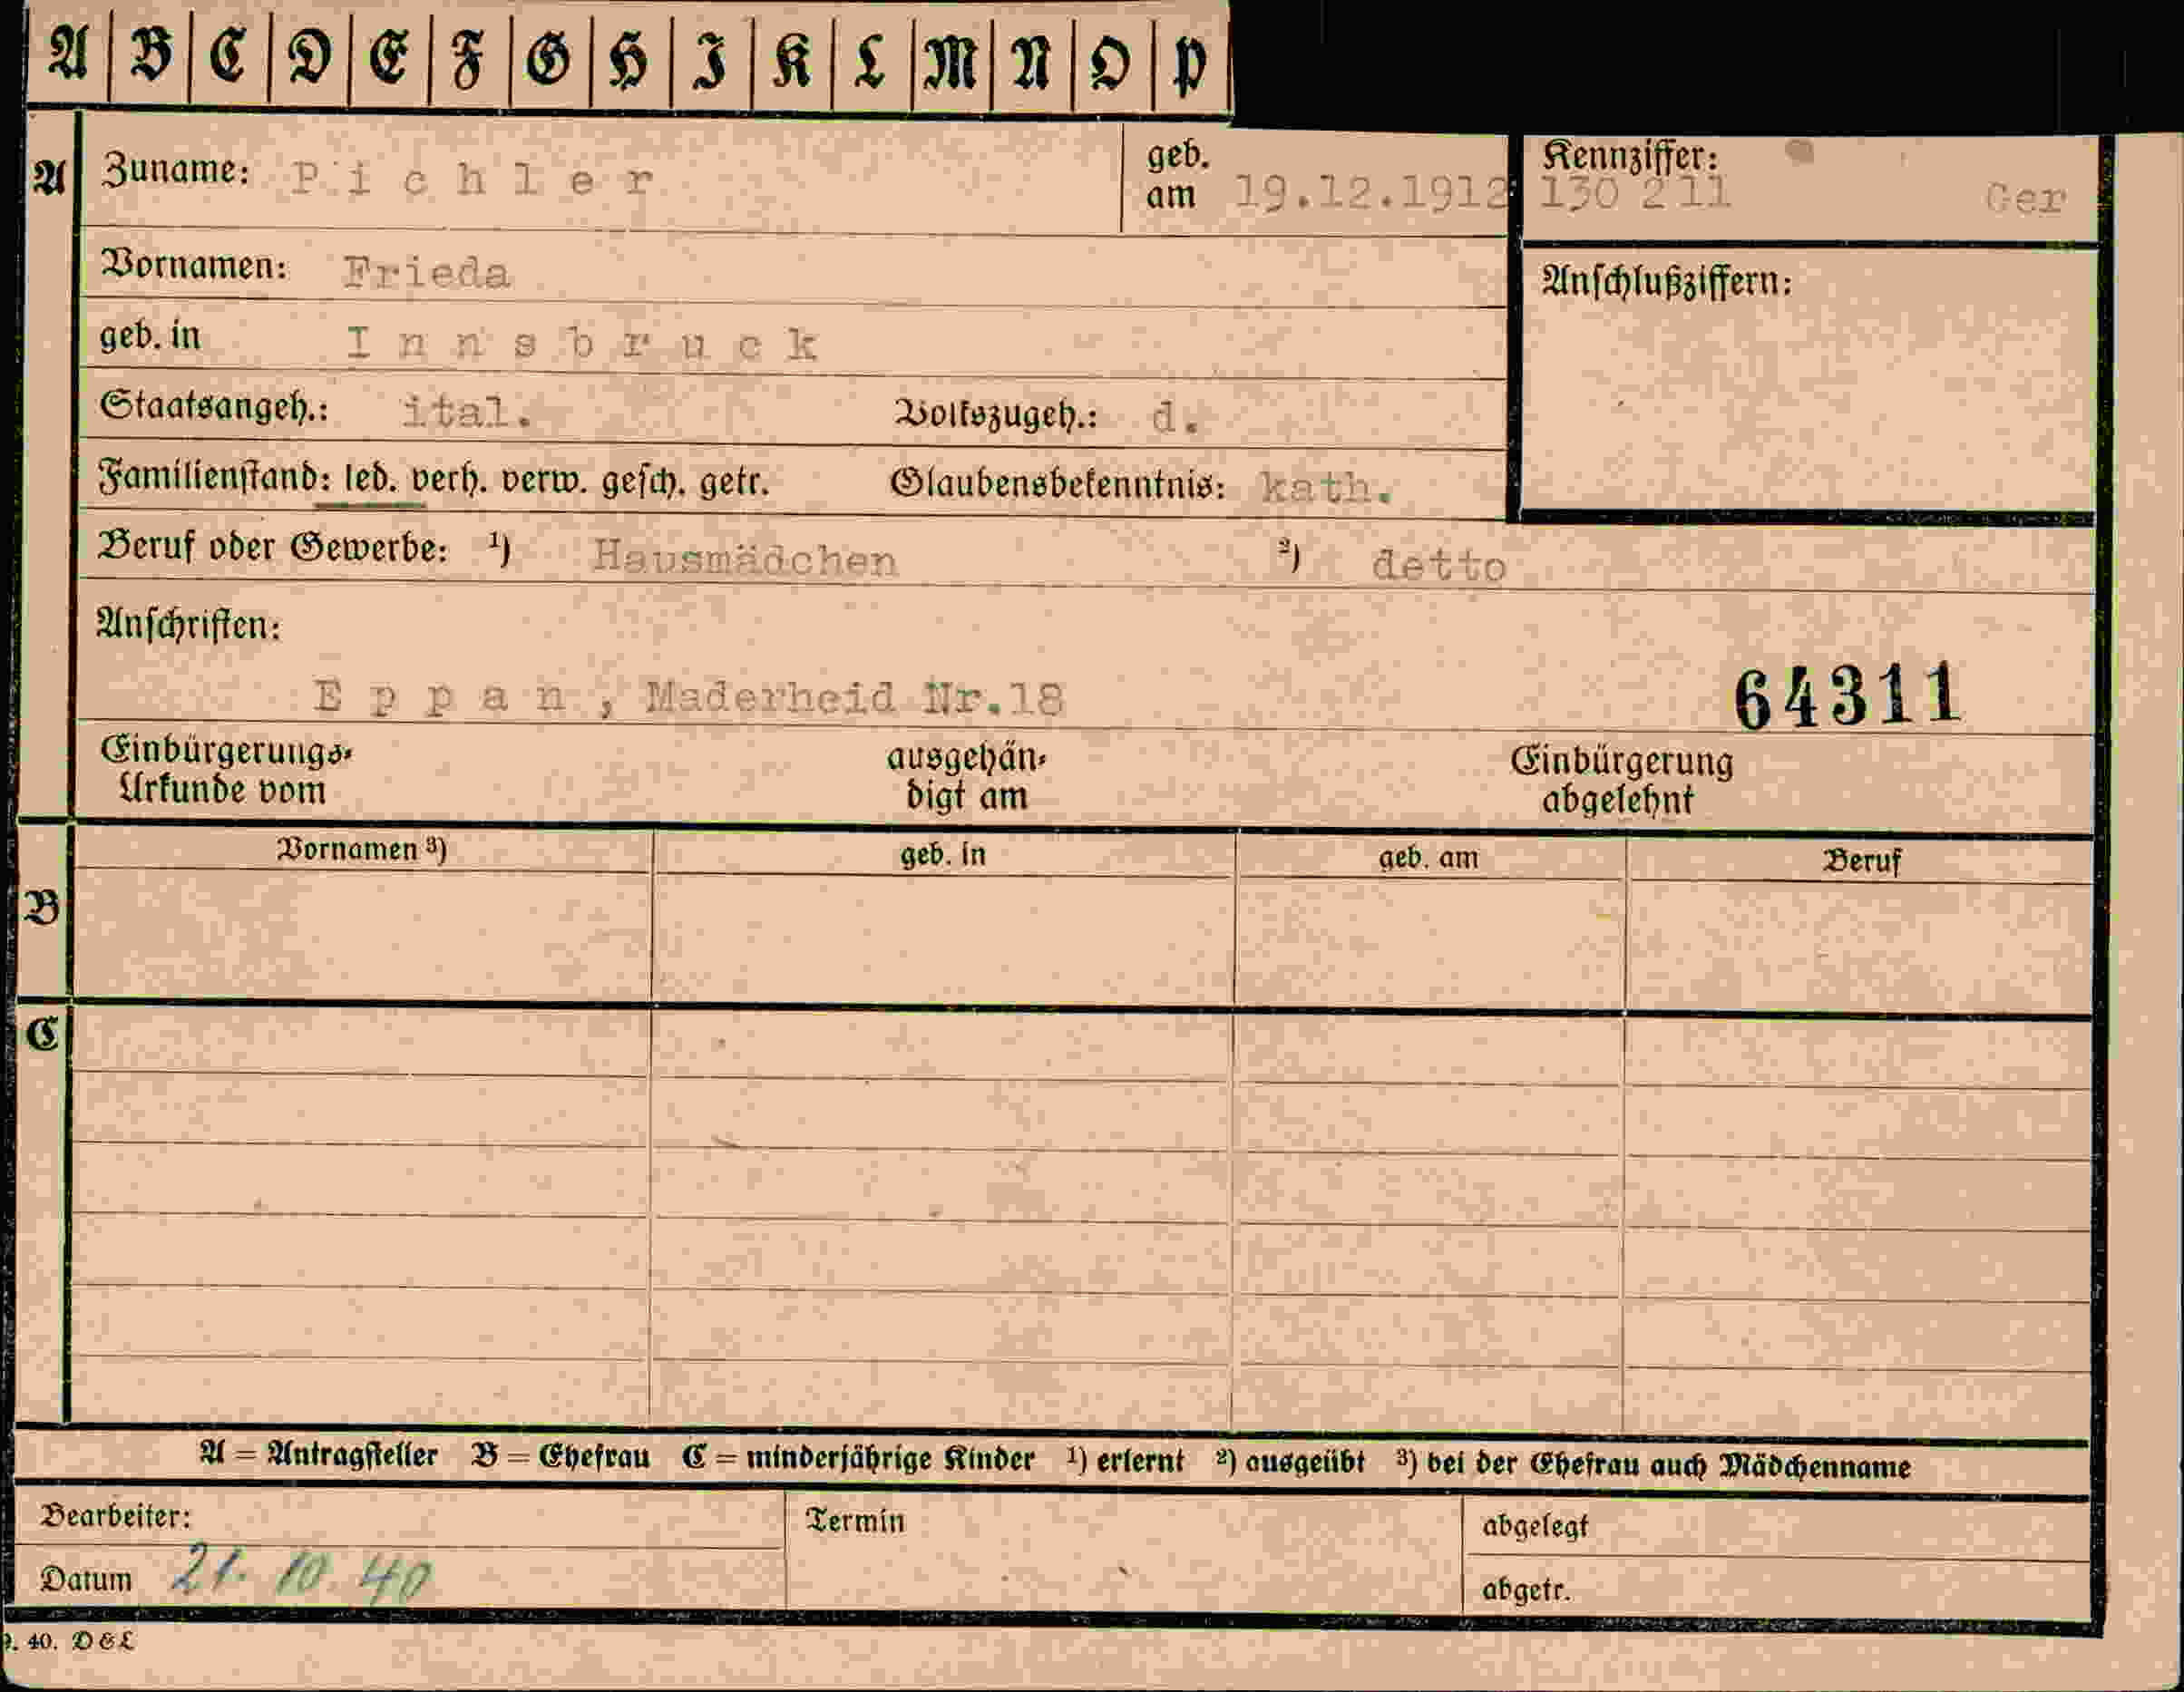 A B C D E F G H I K L M N O P
A Zuname: Pichler geb. am 19.12.1912 Kennziffer: 130 211 Ger
Vornamen: Frieda Anschlußziffern:
geb. in Innsbruck
Staatsangeh.: ital. Volkszugeh.: d.
Familienstand: led. verh. verw. gesch. getr. Glaubensbekenntnis: kath.
Beruf oder Gewerbe: 1) Hausmädchen 2) detto
Anschriften:
Eppan, Maderheid Nr.18 64311
Einbürgerungs- ausgehän- Einbürgerung
Urkunde vom digt am abgelehnt
Vornamen 3) geb. in geb. am Beruf
B
C
A = Antragsteller B = Ehefrau C = minderjährige Kinder 1) erlernt 2) ausgeübt 3) bei der Ehefrau auch Mädchenname
Bearbeiter: Termin abgelegt
Datum 21. 10. 40 abgetr.
40. D & L